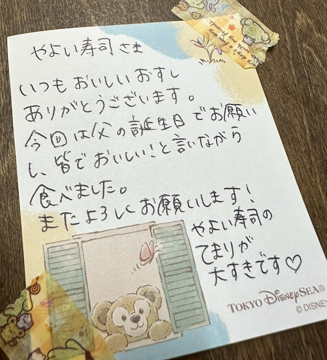 やよい寿司さま
いつもおいしいおすし
ありがとうございます。
今回は父の誕生日でお願い
し、皆でおいしい!と言いながら
食べました。
またよろしくお願いします!
やよい寿司の
てまりが
大すきです♡
TOKYO DISNEYSEA®
© DISNEY